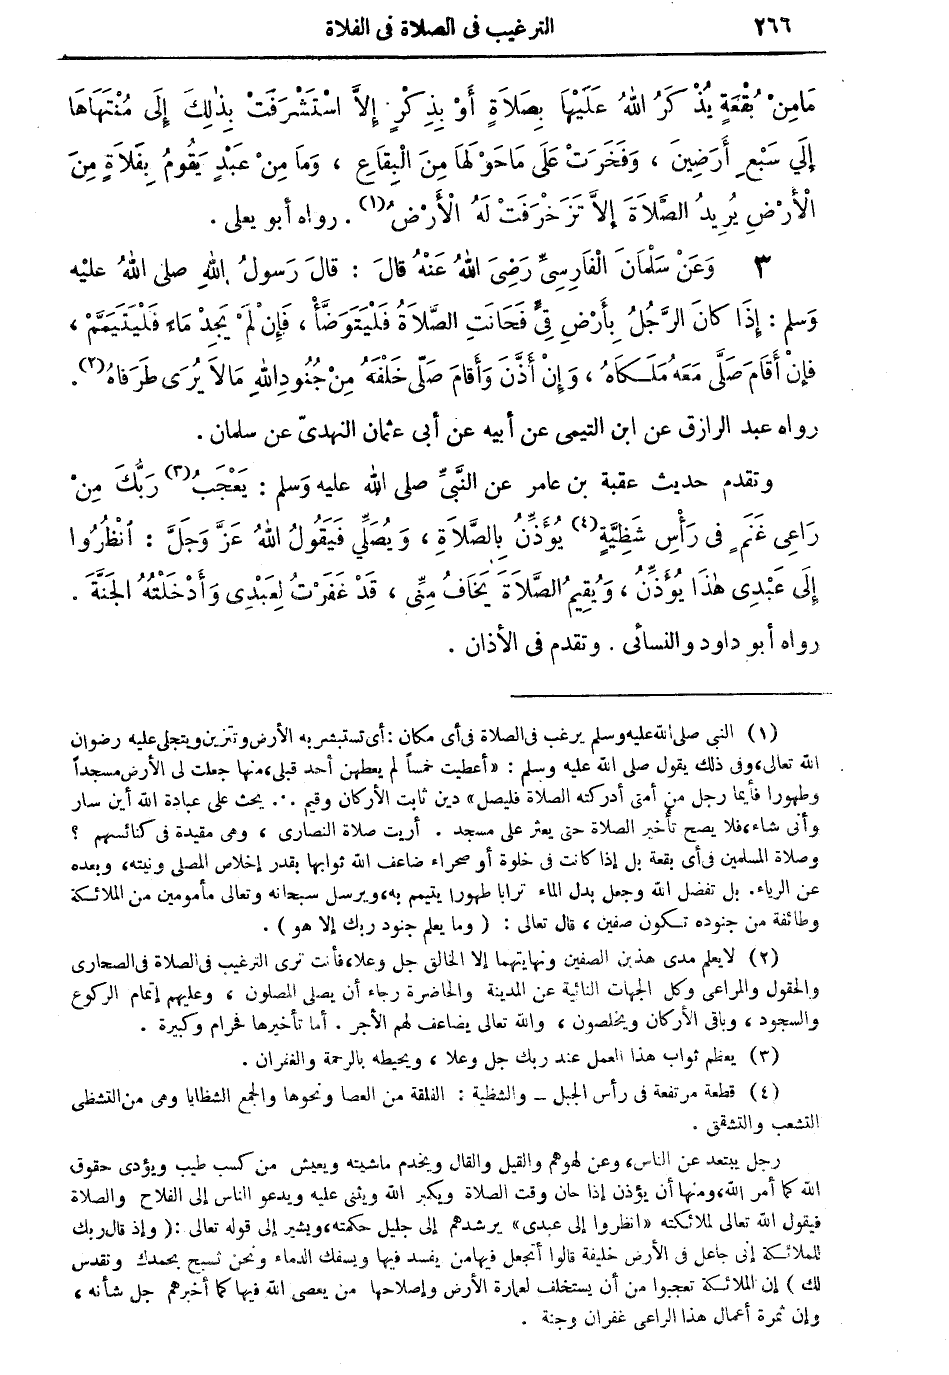 ٢٦٦ الترغيب فى الصلاة فى الفلاة
مَامِنْ بُقْعَةٍ يُذْكَرُ اللهُ عَلَيْهَا بِصَلَاةٍ أَوْ بِذِكْرٍ إِلاَّ اسْتَشْرَفَتْ بِذٰلِكَ إِلَى مُنْتَهَاهَا
إِلَى سَبْعِ أَرَضِينَ ، وَفَخَرَتْ عَلَى مَاحَوْلَهَا مِنَ الْبِقَاعِ ، وَمَا مِنْ عَبْدٍ يَقُومُ بِفَلَاةٍ مِنَ
الْأَرْضِ يُرِيدُ الصَّلَاةَ إِلاَّ تَزَخْرَفَتْ لَهُ الْأَرْضُ(١) . رواه أبو يعلى .
٣ وَعَنْ سَلْمَانَ الْفَارِسِىِّ رَضِىَ اللهُ عَنْهُ قالَ : قالَ رَسولُ اللهِ صلى اللهُ عليْه
وَسلم : إِذَا كانَ الرَّجُلُ بِأَرْضِ قِىٍّ فَحَانَتِ الصَّلاَةُ فَلْيَتَوَضَّأْ ، فَإِنْ لَمْ يَجِدْ مَاءً فَلْيَتَيَمَّمْ ،
فإِنْ أَقَامَ صَلَّى مَعَهُ مَلَكاهُ ، وَإِنْ أَذَّنَ وَأَقامَ صَلَّى خَلْفَهُ مِنْ جُنُودِ اللهِ مَالاَ يُرَى طَرَفاهُ(٢).
رواه عبد الرازق عن ابن التيمى عن أبيه عن أبى عثمان النهدىّ عن سلمان .
وتقدم حديث عقبة بن عامر عن النَّبىِّ صلى الله عليه وَسلم : يَعْجَبُ(٣) رَبُّكَ مِنْ
رَاعِى غَنَمٍ فى رَأْسِ شَظِيَّةٍ(٤) يُؤَذِّنُ بِالصَّلاَةِ ، وَيُصَلِّى فَيَقُولُ اللهُ عَزَّ وَجَلَّ : انْظُرُوا
إِلَى عَبْدِى هٰذَا يُؤَذِّنُ ، وَيُقِيمُ الصَّلَاةَ يَخَافُ مِنِّى ، قَدْ غَفَرْتُ لِعَبْدِى وَأَدْخَلْتُهُ الجَنَّةَ .
رواه أبو داود والنسائى . وتقدم فى الأذان .
(١) النبى صلى الله عليه وسلم يرغب فى الصلاة فى أى مكان : أى تستبشر به الأرض وتتزين ويتجلى عليه رضوان
الله تعالى، وفى ذلك يقول صلى الله عليه وسلم : «أعطيت خمساً لم يعطهن أحد قبلى، منها جعلت لى الأرض مسجداً
وطهورا فأيما رجل من أمتى أدركته الصلاة فليصل» دين ثابت الأركان وقيم .·. يحث على عبادة الله أين سار
وأنى شاء، فلا يصح تأخير الصلاة حتى يعثر على مسجد . أريت صلاة النصارى ، وهى مقيدة فى كنائسهم ؟
وصلاة المسلمين فى أى بقعة بل إذا كانت فى خلوة أو صحراء ضاعف الله ثوابها بقدر إخلاص المصلى ونيته، وبعده
عن الرياء. بل تفضل الله وجعل بدل الماء ترابا طهورا يتيمم به، ويرسل سبحانه وتعالى مأمومين من الملائكة
وطائفة من جنوده تكون صفين ، قال تعالى : ( وما يعلم جنود ربك إلا هو ) .
(٢) لايعلم مدى هذين الصفين ونهايتهما إلا الخالق جل وعلا، فأنت ترى الترغيب فى الصلاة فى الصحارى
والحقول والمراعى وكل الجهات النائية عن المدينة والحاضرة رجاء أن يصلى المصلون ، وعليهم إتمام الركوع
والسجود ، وباقى الأركان ويخلصون ، والله تعالى يضاعف لهم الأجر . أما تأخيرها فحرام وكبيرة .
(٣) يعظم ثواب هذا العمل عند ربك جل وعلا ، ويحيطه بالرحمة والغفران .
(٤) قطعة مرتفعة فى رأس الجبل ــ والشظية : الفلقة من العصا ونحوها والجمع الشظايا وهى من التشظى
التشعب والتشقق .
رجل يبتعد عن الناس، وعن لهوهم والقيل والقال ويخدم ماشيته ويعيش من كسب طيب ويؤدى حقوق
الله كما أمر الله، ومنها أن يؤذن إذا حان وقت الصلاة ويكبر الله ويثنى عليه ويدعو الناس إلى الفلاح والصلاة
فيقول الله تعالى لملائكته «انظروا إلى عبدى» يرشدهم إلى جليل حكمته، ويشير إلى قوله تعالى :( وإذ قال ربك
للملائكة إنى جاعل فى الأرض خليفة قالوا أتجعل فيها من يفسد فيها ويسفك الدماء ونحن نسبح بحمدك ونقدس
لك ) إن الملائكة تعجبوا من أن يستخلف لعمارة الأرض وإصلاحها من يعصى الله فيها كما أخبرهم جل شأنه ،
وإن ثمرة أعمال هذا الراعى غفران وجنة .